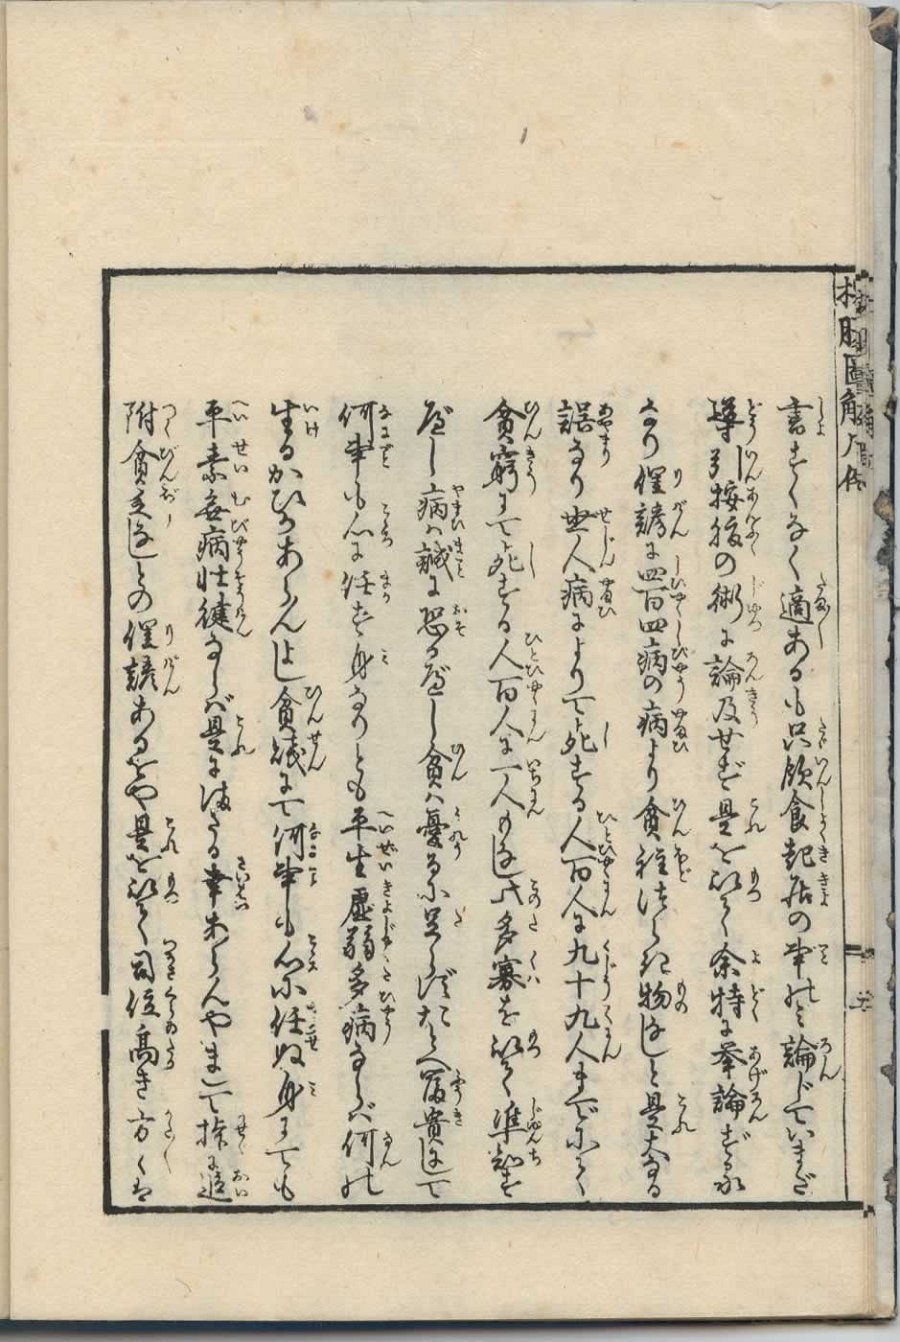 書すくなく適あるも只飲食起居の事のミ論じていまだ
導引按腹の術に論及せず是を以て余特に挙論ずる
なり俚諺に四百四病の病より貧程つらき物はなしと是大なる
誤なり世人病によりて死する人百人に九十九人までにして
貧窮にて死する人百人に一人もなし此多寡を以て準知す
べし病ハ誠に恐るべし貧ハ憂るに足らずたとへ富貴にして
何事も心に任す身なりとも平生虚弱多病ならバ何の
生るかひかあらんよし貧賎にて何事も心に任ぬ身にても
平素無病壮健ならバ是にまさる幸あらんやまして操に追
附貧乏なしとの俚諺あるをや是を以て司位高き方々は